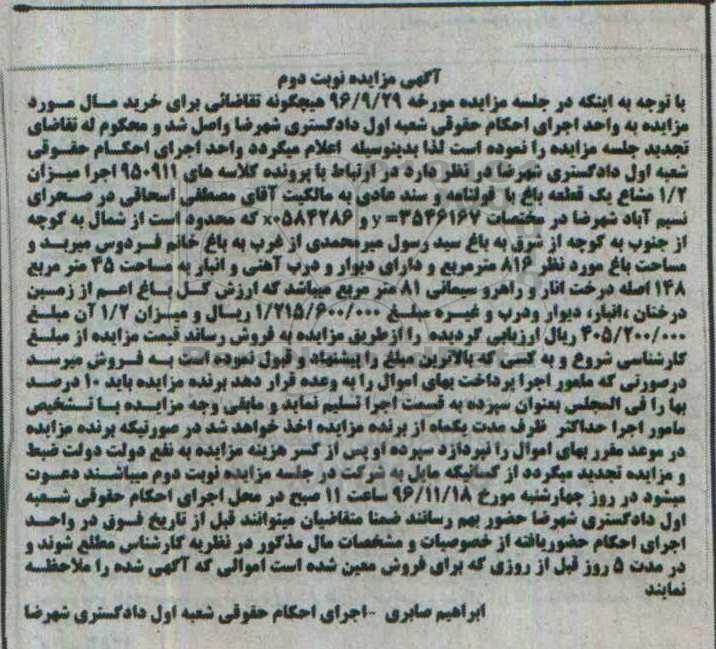 آگهی مزایده نوبت دوم
با توجه به اینکه در جلسه مزایده مورخه ۹۶/۹/۲۹ هیچگونه تقاضائی برای خرید مال مورد
مزایده به واحد اجرای احکام حقوقی شعبه اول دادگستری شهرضا واصل شد و محکوم له تقاضای
تجدید جلسه مزایده را نموده است لذا بدینوسیله اعلام میگردد واحد اجرای احکام حقوقی
شعبه اول دادگستری شهرضا در نظر دارد در ارتباط با پرونده کلاسه های ۹۵۰۹۱۱ اجرا میزان
۱/۲ مشاع یک قطعه باغ با قولنامه و سند عادی به مالکیت آقای مصطفی اسحاقی در صحرای
نسیم آباد شهرضا در مختصات y=۳۵۴۶۱۶۷ و x۰۵۸۴۲۸۶ که محدود است از شمال به کوچه
از جنوب به کوچه از شرق به باغ سید رسول میرمحمدی از غرب به باغ خانم فردوس میرید و
مساحت باغ مورد نظر ۸۱۶ مترمربع و دارای دیوار و درب آهنی و انبار به مساحت ۴۵ متر مربع
۱۴۸ اصله درخت انار و راهرو سیمانی ۸۱ متر مربع میباشد که ارزش کل باغ اعم از زمین
درختان ،انبار، دیوار ودرب و غیره مبلغ ۱/۲۱۵/۶۰۰/۰۰۰ ریال و میزان ۱/۲ آن مبلغ
۴۰۵/۲۰۰/۰۰۰ ریال ارزیابی گردیده را ازطریق مزایده به فروش رساند قیمت مزایده از مبلغ
کارشناسی شروع و به کسی که بالاترین مبلغ را پیشنهاد و قبول نموده است به فروش میرسد
درصورتی که مامور اجرا پرداخت بهای اموال را به وعده قرار دهد برنده مزایده باید ۱۰ درصد
بها را فی المجلس بعنوان سپرده به قسمت اجرا تسلیم نماید و مابقی وجه مزایده با تشخیص
مامور اجرا حداکثر ظرف مدت یکماه از برنده مزایده اخذ خواهد شد در صورتیکه برنده مزایده
در موعد مقرر بهای اموال را نپردازد سپرده او پس از کسر هزینه مزایده به نفع دولت دولت ضبط
و مزایده تجدید میگردد از کسانیکه مایل به شرکت در جلسه مزایده نوبت دوم میباشند دعوت
میشود در روز چهارشنبه مورخ ۹۶/۱۱/۱۸ ساعت ۱۱ صبح در محل اجرای احکام حقوقی شعبه
اول دادگستری شهرضا حضور بهم رسانند ضمنا متقاضیان میتوانند قبل از تاریخ فوق در واحد
اجرای احکام حضوریافته از خصوصیات و مشخصات مال مذکور در نظریه کارشناس مطلع شوند و
در مدت ۵ روز قبل از روزی که برای فروش معین شده است اموالی که آگهی شده را ملاحظه
نمایند
ابراهیم صابری -اجرای احکام حقوقی شعبه اول دادگستری شهرضا